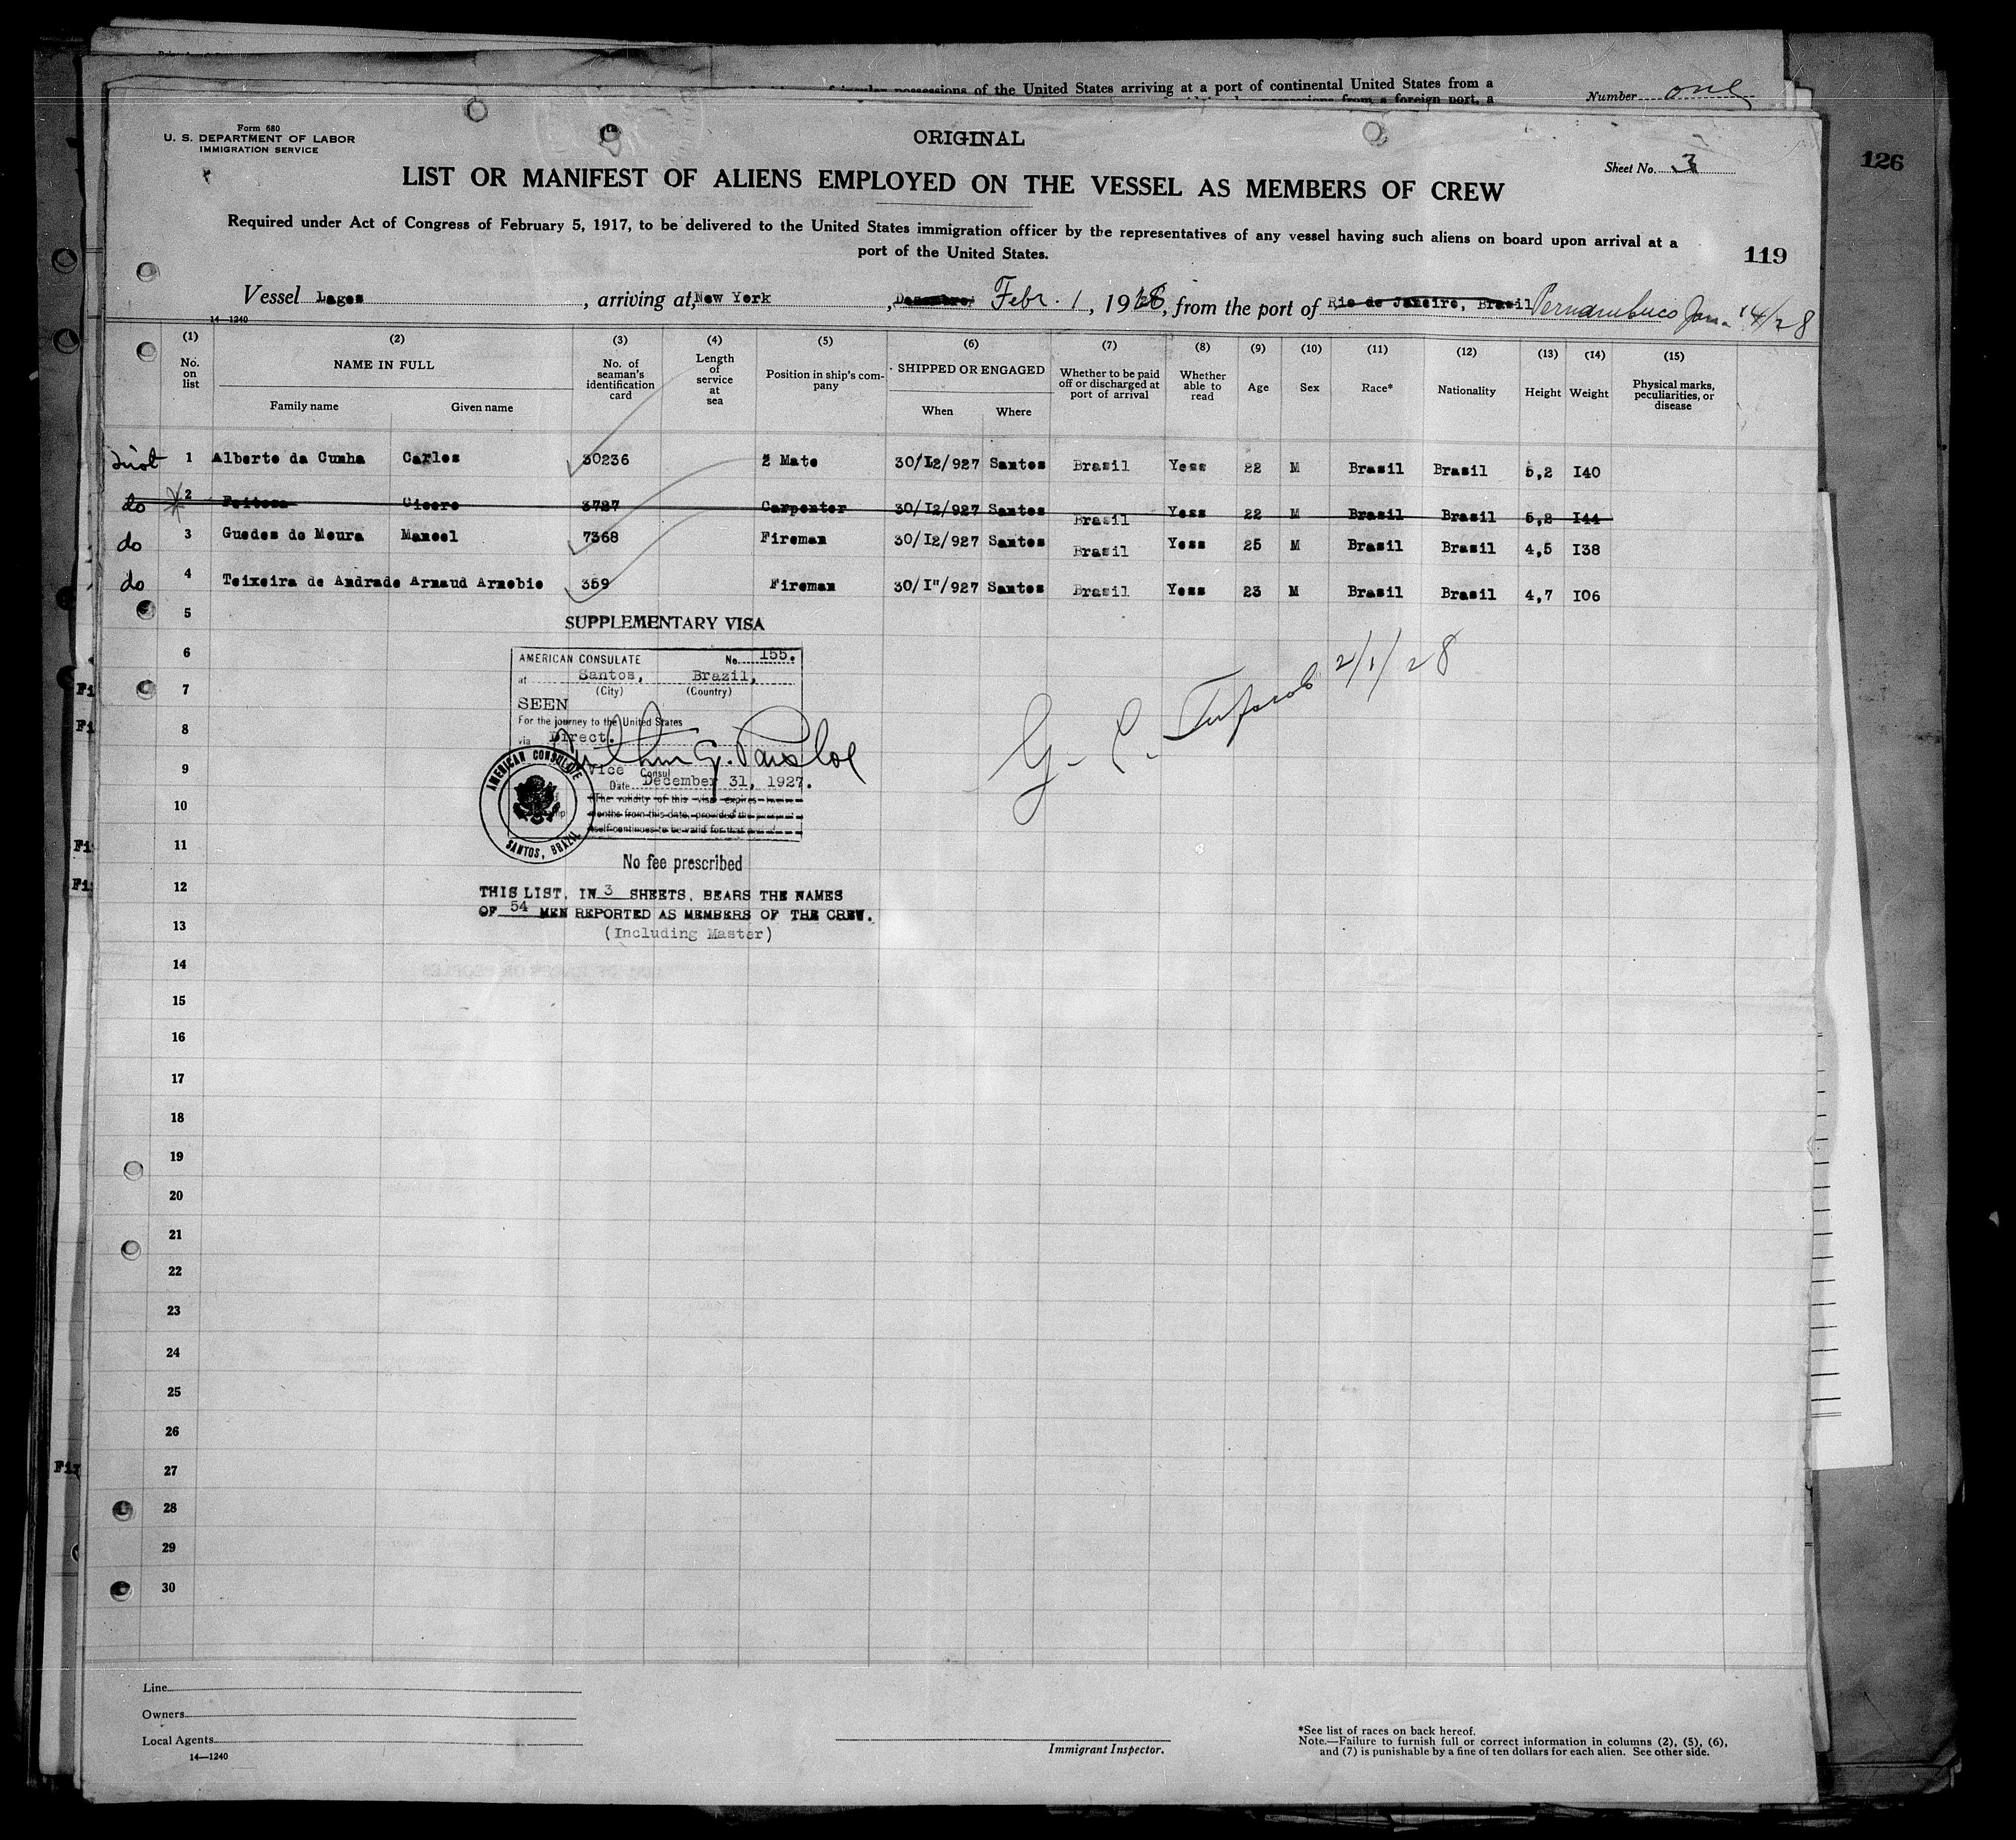 possessions of the United States arriving at a port of continental United States from a
possessions from a foreign port, a
Number one
Form 680
U. S. DEPARTMENT OF LABOR
IMMIGRATION SERVICE
ORIGINAL
Sheet No. 3
126
LIST OR MANIFEST OF ALIENS EMPLOYED ON THE VESSEL AS MEMBERS OF CREW
Required under Act of Congress of February 5, 1917, to be delivered to the United States immigration officer by the representatives of any vessel having such aliens on board upon arrival at a
port of the United States.
119
Vessel Lages, arriving at, New York, Febr. 1, 1928, from the port of Rio de Janeiro, Brasil Pernambuco Jan. 14/28
14—1240
(1) (2) (3) (4) (5) (6) (7) (8) (9) (10) (11) (12) (13) (14) (15)
No. on list
NAME IN FULL
Family name Given name
No. of seaman's identification card
Length of service at sea
Position in ship's company
SHIPPED OR ENGAGED
When Where
Whether to be paid off or discharged at port of arrival
Whether able to read
Age Sex Race* Nationality Height Weight
Physical marks, peculiarities, or disease
1 Alberto da Cunha Carlos 30236 2 Mate 30/12/927 Santos Brasil Yess 22 M Brasil Brasil 5,2 I40
do 2 Feitosa Cicero 3727 Carpenter 30/I2/927 Santos Brasil Yess 22 M Brasil Brasil 5,2 I44
do 3 Guedes de Moura Manoel 7368 Fireman 30/I2/927 Santos Brasil Yess 25 M Brasil Brasil 4,5 I38
do 4 Teixeira de Andrade Arnaud Arnobio 359 Fireman 30/I"/927 Santos Brasil Yess 23 M Brasil Brasil 4,7 I06
5
SUPPLEMENTARY VISA
6
AMERICAN CONSULATE No. 155.
at Santos, Brazil,
(City) (Country)
7
SEEN
For the journey to the United States
8
via Direct.
2/1/28
9
Vice Consul
Date December 31, 1927.
AMERICAN CONSULATE
SANTOS, BRAZIL
10
(The validity of this visa expires twelve
months from this date, provided the
itself continues to be valid for that
11
No fee prescribed
12
THIS LIST, IN 3 SHEETS, BEARS THE NAMES
OF 54 MEN REPORTED AS MEMBERS OF THE CREW.
(Including Master)
13
14
15
16
17
18
19
20
21
22
23
24
25
26
27
28
29
30
Line
Owners
Local Agents
14—1240
Immigrant Inspector.
*See list of races on back hereof.
Note.—Failure to furnish full or correct information in columns (2), (5), (6),
and (7) is punishable by a fine of ten dollars for each alien. See other side.